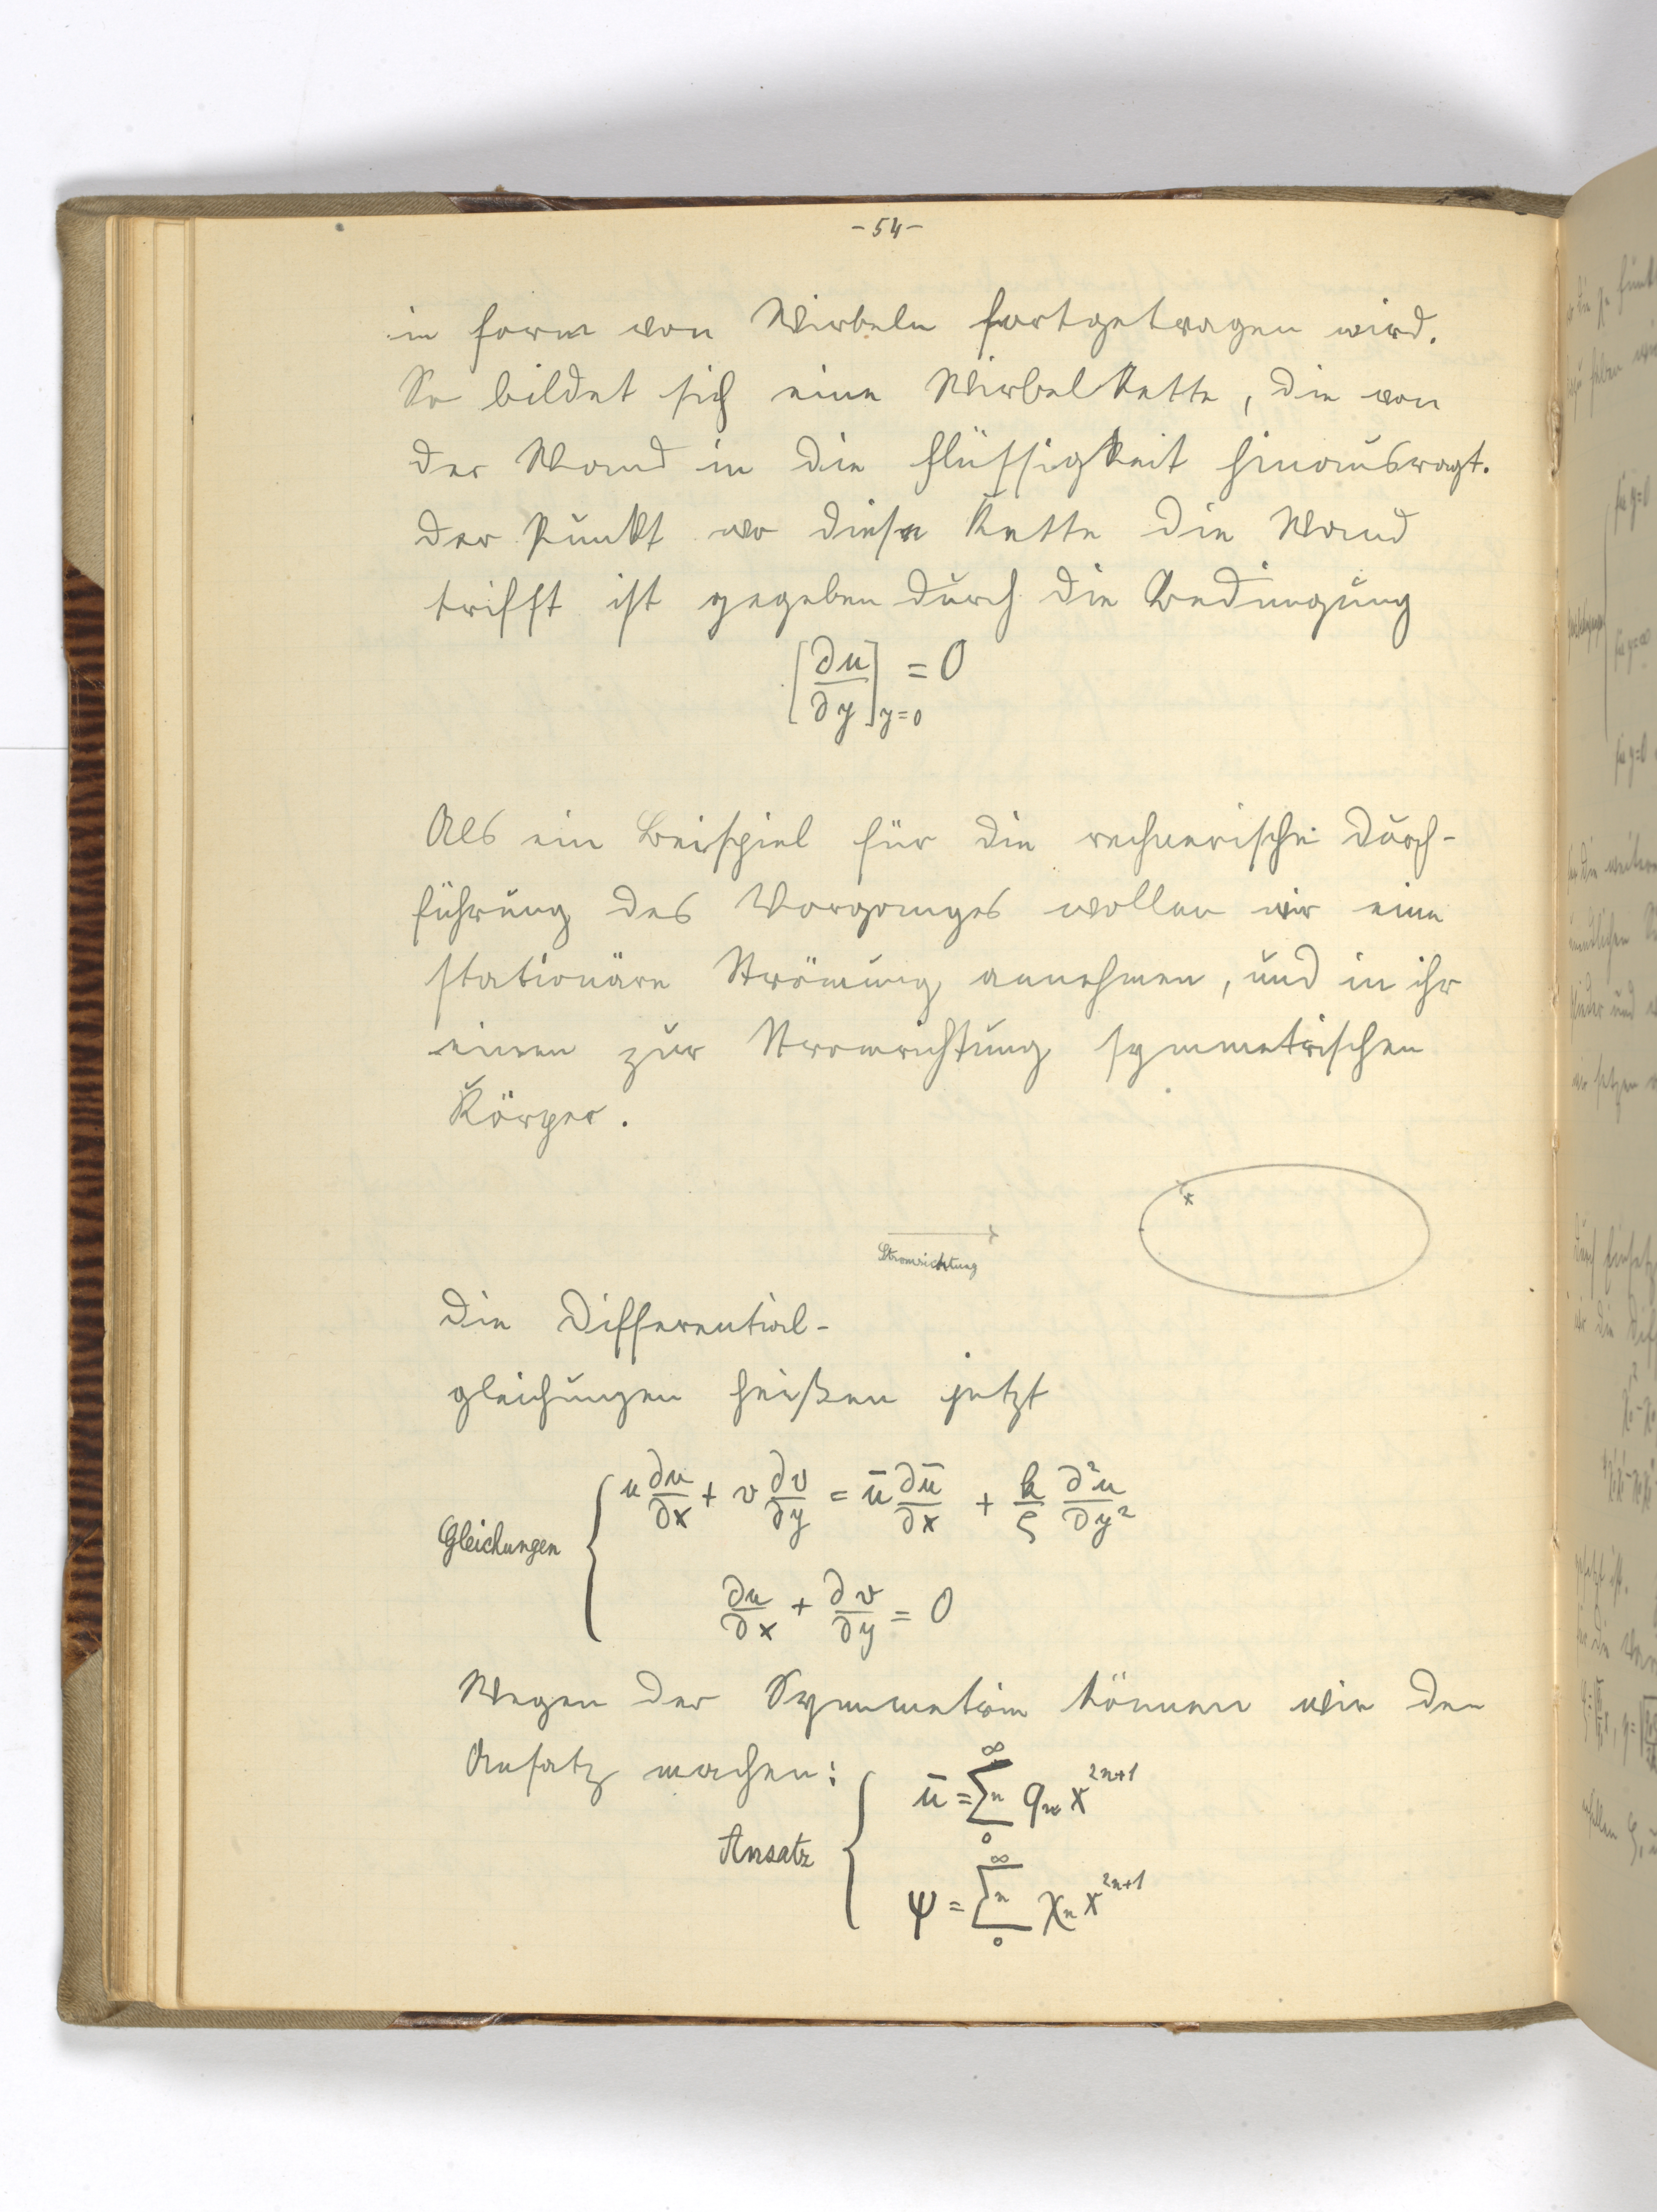 - 54 -
in Form von Wirbeln fortgetragen wird.
So bildet sich eine Wirbelkette, die von
der Wand in die Flüssigkeit hinausragt.
Der Punkt wo diese Kette die Wand
trifft ist gegeben durch die Bedingung
[∂u/∂y]_{y=0} = 0
Als ein Beispiel für die rechnerische Durch-
führung des Vorganges wollen wir eine
stationäre Strömung annehmen, und in ihr
einen zur Stromrichtung symmetrischen
Körper.
x
Stromrichtung
Die Differential-
gleichungen heißen jetzt
u ∂u/∂x + v ∂v/∂y = ū ∂ū/∂x + k/ς ∂²u/∂y²
Gleichungen
∂u/∂x + ∂v/∂y = 0
Wegen der Symmetrie können wir den
Ansatz machen:
ū = ∑_0^∞ n q_n x^{2n+1}
Ansatz
ψ = ∑_0^∞ n χ_n x^{2n+1}